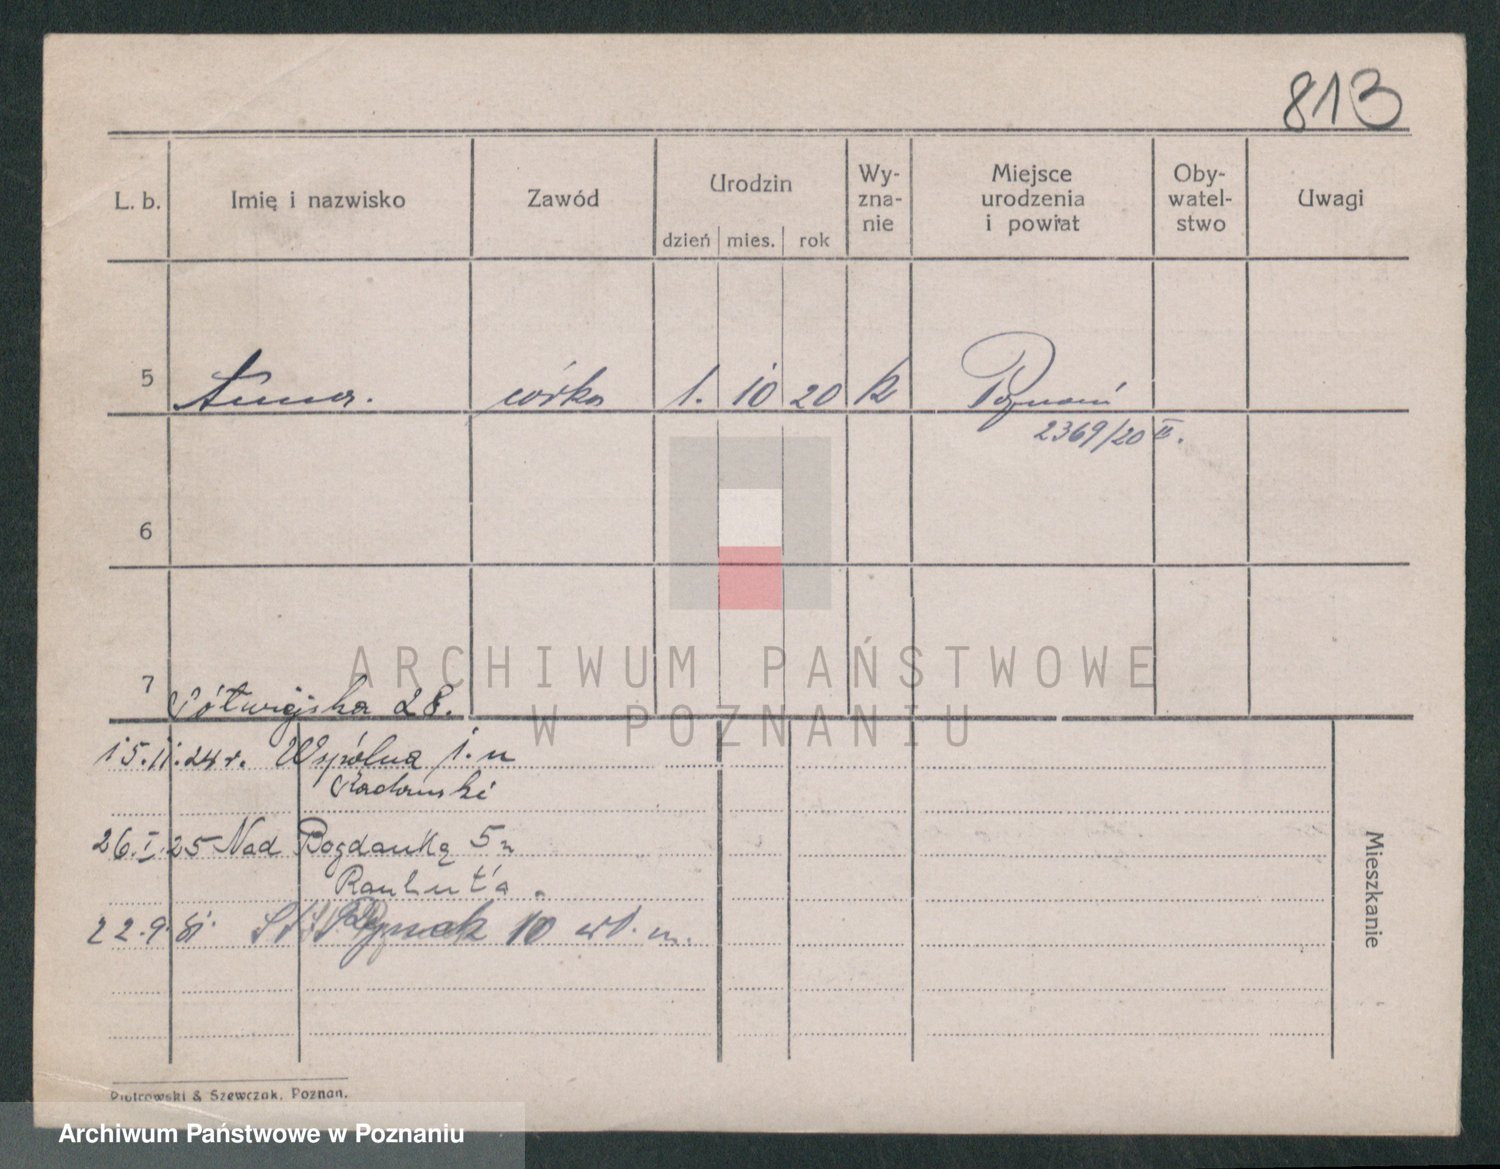 813
L. b. Imię i nazwisko Zawód Urodzin Wy-zna-nie Miejsce urodzenia i powiat Oby-watel-stwo Uwagi
dzień mies. rok
5 Anna. córka 1. 10 20 k Poznań
2369/20 II.
6
7 Półwiejska 28.
15.11.24 r. Wspólna 1. u
Radomski
26.I.25 Nad Bogdanką 5 u
Rauhut'a.
22.9.31. St. Rynek 10 wł. m.
Mieszkanie
Piotrowski & Szewczak, Poznań.
ARCHIWUM PAŃSTWOWE
W POZNANIU
Archiwum Państwowe w Poznaniu